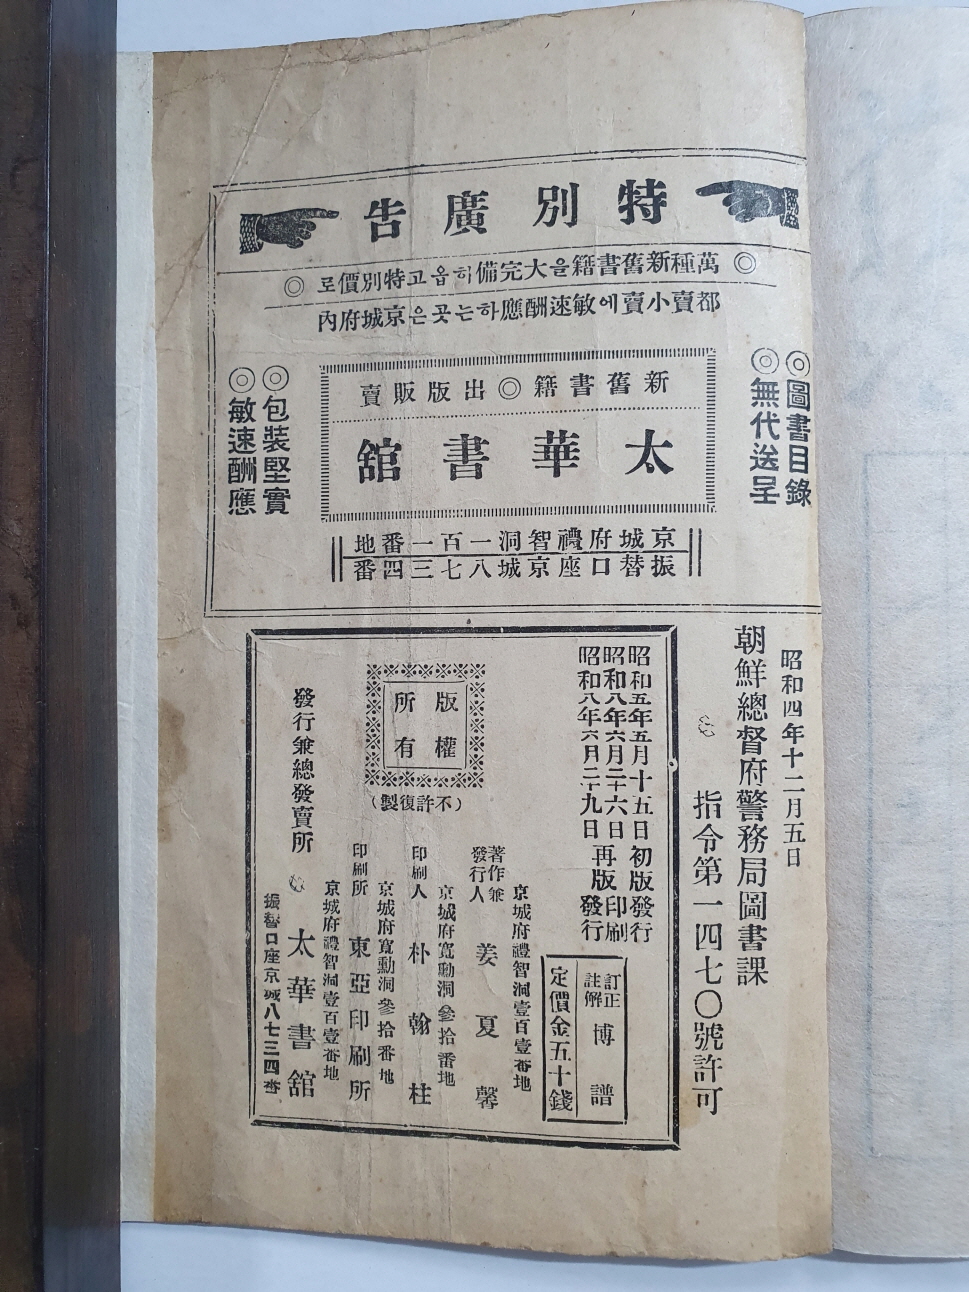 特別廣告
◎萬種新舊書籍을大完備히읍고特別價로◎
都賣小賣에敏速酬應하는곳은京城府內
◎圖書目錄
◎無代送呈
新舊書籍◎出版販賣
太華書舘
◎包裝堅實
◎敏速酬應
京城府禮智洞一百一番地
振替口座京城八七三四番
昭和四年十二月五日
朝鮮總督府警務局圖書課
指令第一四七〇號許可
昭和五年五月十五日初版發行
昭和八年六月二十六日再版印刷
昭和八年六月二十九日再版發行
訂正註解 博譜
定價金五十錢
京城府禮智洞壹百壹番地
著作兼發行人 姜夏馨
京城府寬勳洞參拾番地
印刷人 朴翰柱
京城府寬勳洞參拾番地
印刷所 東亞印刷所
版權所有
(不許復製)
京城府禮智洞壹百壹番地
發行兼總發賣所 太華書舘
振替口座京城八七三四番